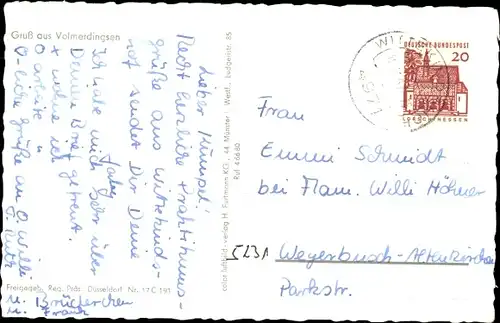 Gruß aus Volmerdingsen
Lieber Kumpel!
Recht herzliche
grüße aus Wittekinds-
sendet Dir Deine
Ich habe mich sehr über
Deinen Brief gefreut.
grüße an O Willi
u. Brüderchen
u. Frank
Freigegeb. Reg. Präs. Düsseldorf Nr. 17 C 191
color luftbild-verlag H. Fuhrmann KG., 44 Münster Westf., Ludgeristr. 85
Ruf 4 66 80
DEUTSCHE BUNDESPOST
20
LORSCH HESSEN
Frau
Emmi Schmidt
bei Fam. Willi Höhner
523A Weyerbusch-Altenkirchen
Parkstr.